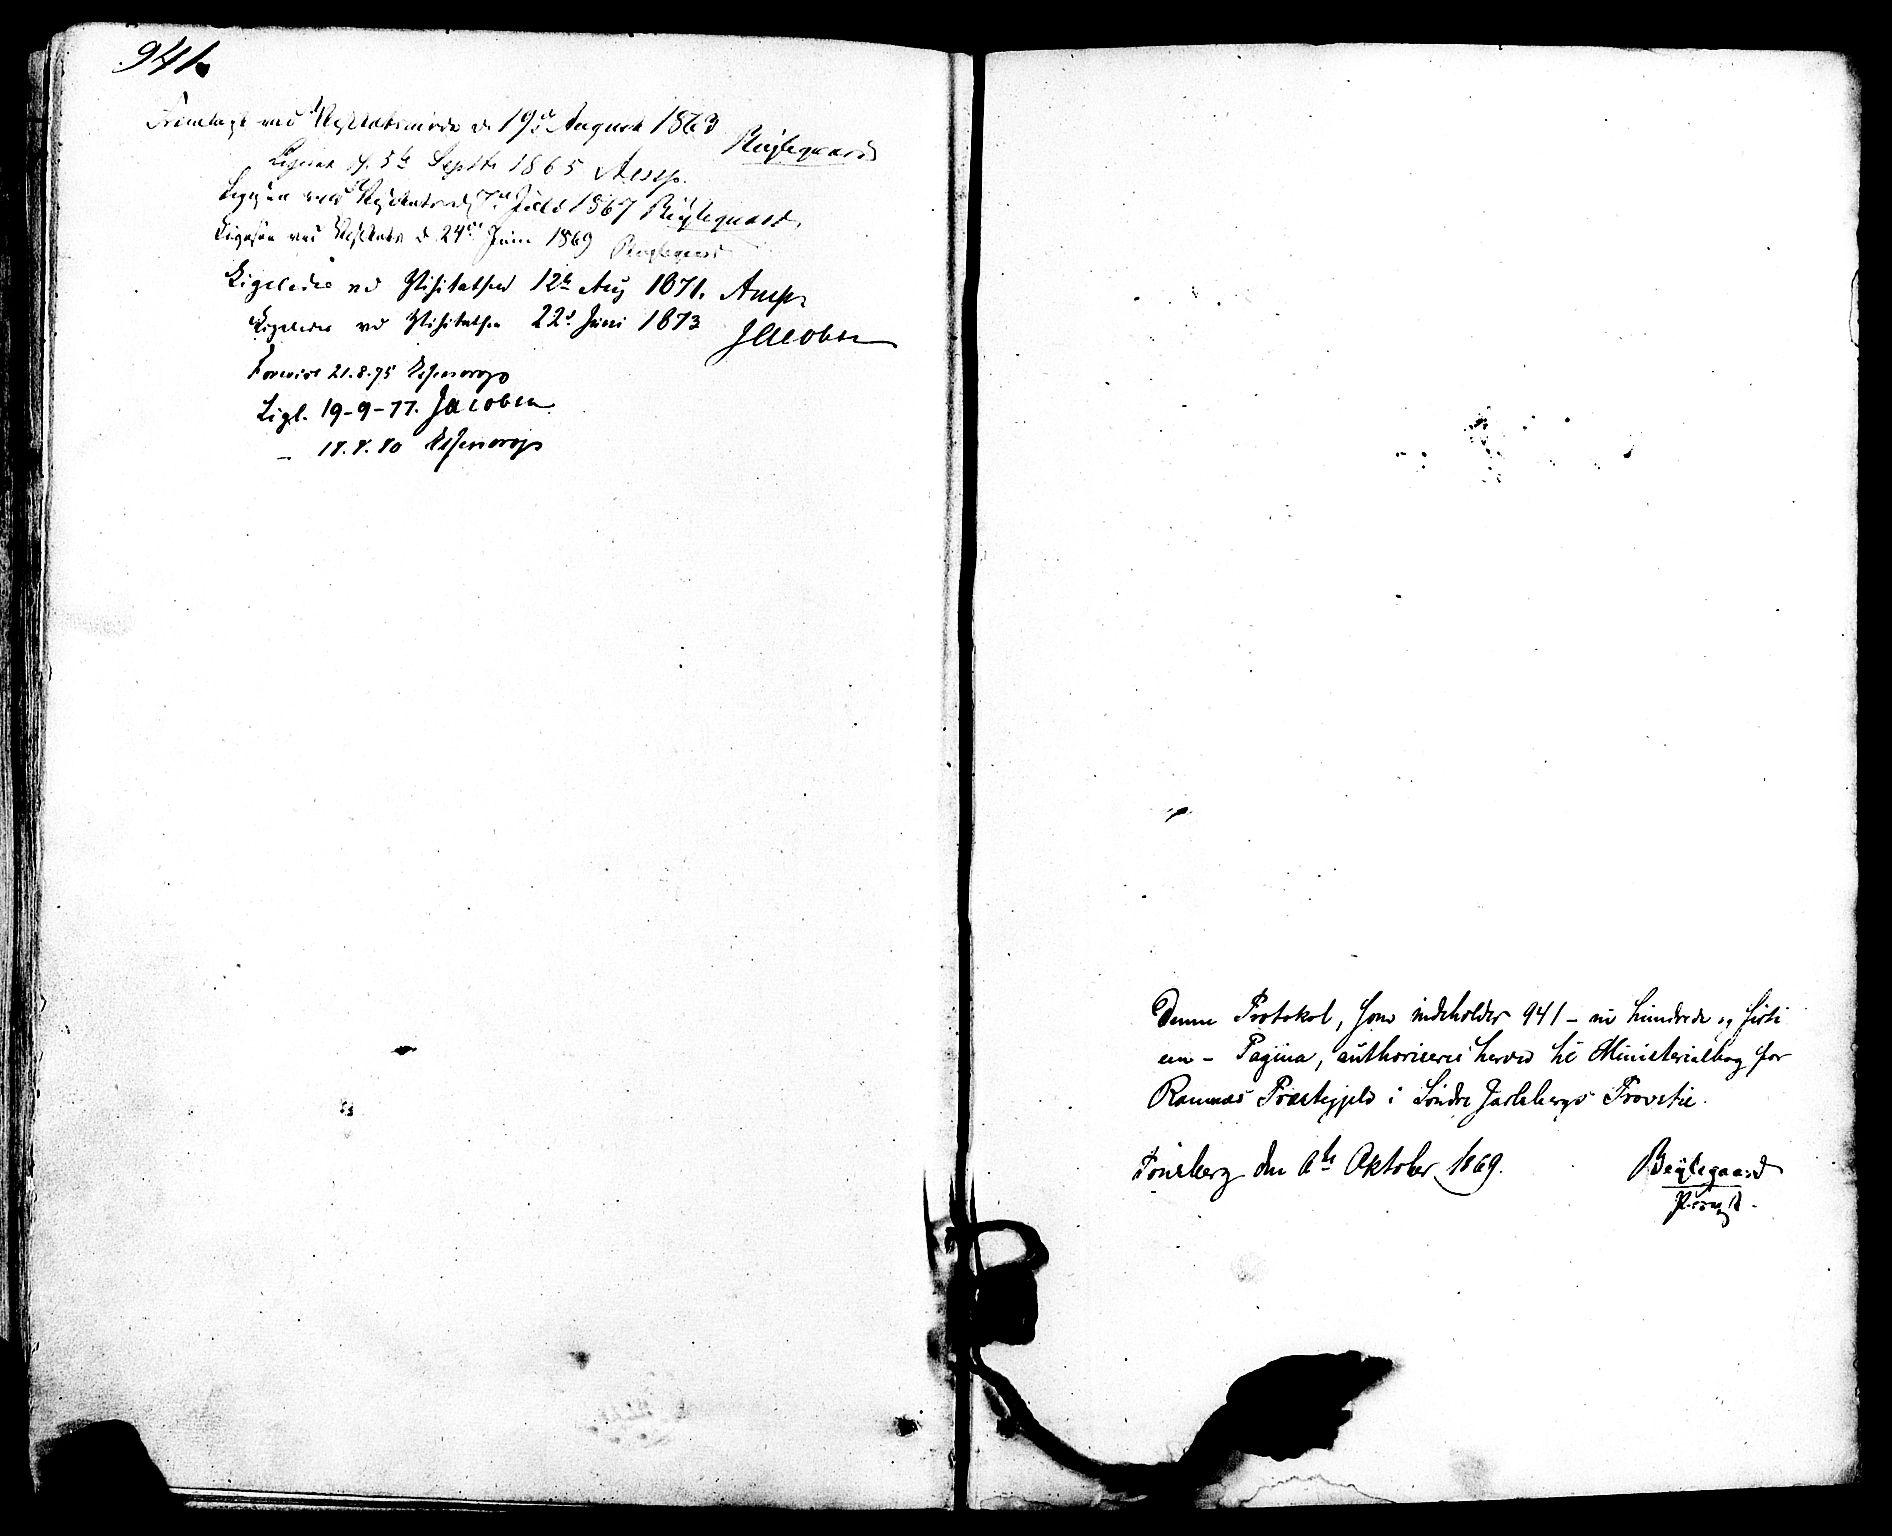 941.
Fremlagt ved Visitatsmøde d. 19de August 1863 Beÿlegaard
Ligesaa 5te Septb 1865
Ligesaa ved Visitats d. 7de Juli 1867 Beÿlegaard,
Ligesaa ved Visitats d. 24de Juni 1869 Beÿlegaard
Ligeledes ved Visitatsen 12te Aug 1871.
Ligeledes ved Visitatsen 22d Juni 1873 JJacobsen
Forevist 21.8.75
Ligl. 19-9-77. Jacobsen
– 18.8.80
Denne Protokol, som indeholder 941 – ni hundrede og firti
een – Pagina, authoriseres herved til Ministerialbog for
Ramnæs Præstegjeld i Søndre Jarlsbergs Provstie.
Tønsberg den 6te Oktober 1869.
Beÿlegaard
Provst.